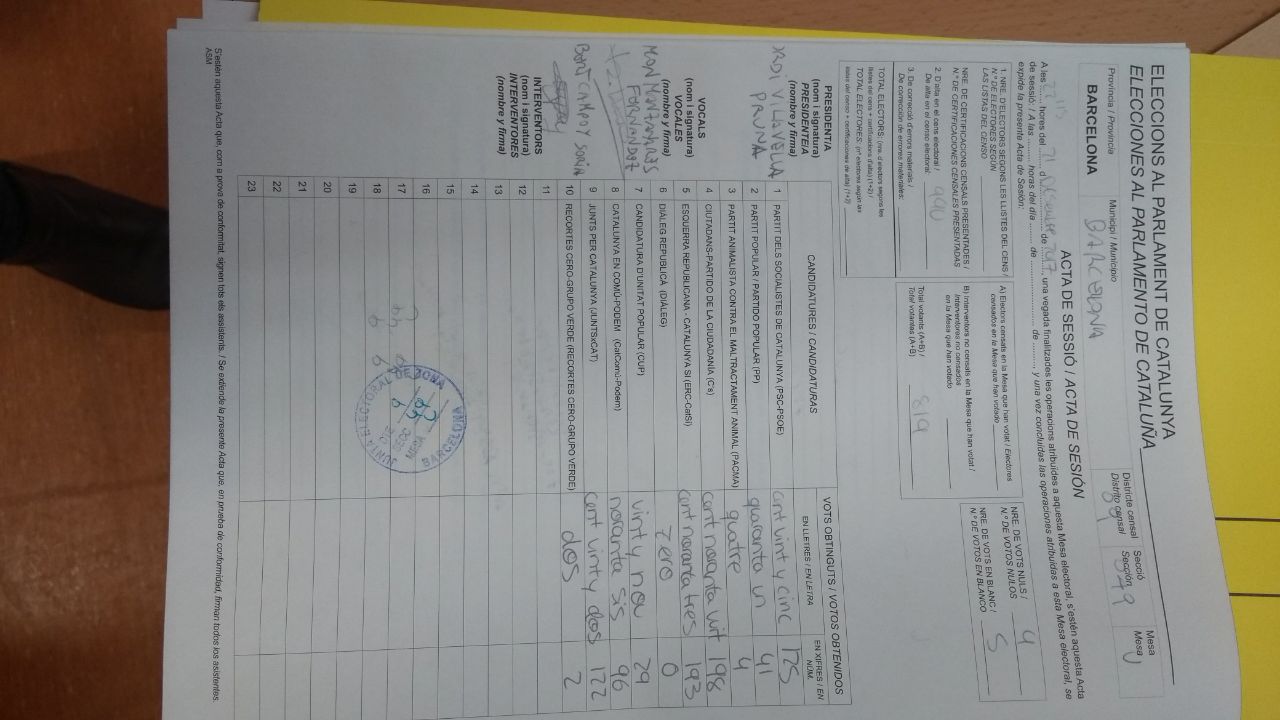 ELECCIONS AL PARLAMENT DE CATALUNYA
ELECCIONES AL PARLAMENTO DE CATALUÑA
Província / Provincia
BARCELONA
Municipi / Municipio
BARCELONA
Districte censal
Distrito censal
09
Secció
Sección
049
Mesa
Mesa
U
ACTA DE SESSIÓ / ACTA DE SESIÓN
A les 22'15 hores del 21 d Desembre de 2017, una vegada finalitzades les operacions atribuïdes a aquesta Mesa electoral, s'estén aquesta Acta
de sessió: / A las ......... hores del día ......... de ......... de ......... y una vez concluidas las operaciones atribuidas a esta Mesa electoral, se
expide la presente Acta de Sesión:
1. NRE. D'ELECTORS SEGONS LES LLISTES DEL CENS /
N.º DE ELECTORES SEGÚN
LAS LISTAS DEL CENSO
NRE. DE CERTIFICACIONS CENSALS PRESENTADES /
N.º DE CERTIFICACIONES CENSALES PRESENTADAS
2. D'alta en el cens electoral /
De alta en el censo electoral:
990
3. De correcció d'errors materials /
De corrección de errores materiales:
TOTAL ELECTORS: (nre. d'electors segons les
llistes del cens + certificacions d'alta) (1+2)
TOTAL ELECTORES: (nº electores según las
listas del censo + certificaciones de alta) (1+2)
A) Electors censats en la Mesa que han votat / Electores
censados en la Mesa que han votado
B) Interventors no censats en la Mesa que han votat /
Interventores no censados
en la Mesa que han votado
Total votants (A+B) /
Total votantes (A+B)
819
NRE. DE VOTS NULS /
N.º DE VOTOS NULOS
4
NRE. DE VOTS EN BLANC /
N.º DE VOTOS EN BLANCO
5
PRESIDENT/A
(nom i signatura)
PRESIDENTE/A
(nombre y firma)
VILAVELLA
PRUNA
VOCALS
(nom i signatura)
VOCALES
(nombre y firma)
FERNANDEZ
CAMPOY SORIA
INTERVENTORS
(nom i signatura)
INTERVENTORES
(nombre y firma)
CANDIDATURES / CANDIDATURAS
VOTS OBTINGUTS / VOTOS OBTENIDOS
EN LLETRES / EN LETRA
EN XIFRES / EN NÚM.
1 PARTIT DELS SOCIALISTES DE CATALUNYA (PSC-PSOE) cent vint y cinc 125
2 PARTIT POPULAR / PARTIDO POPULAR (PP) quaranta un 41
3 PARTIT ANIMALISTA CONTRA EL MALTRACTAMENT ANIMAL (PACMA) quatre 4
4 CIUTADANS-PARTIDO DE LA CIUDADANÍA (C's) cent noranta vuit 198
5 ESQUERRA REPUBLICANA - CATALUNYA SÍ (ERC-CatSí) cent noranta tres 193
6 DIÀLEG REPUBLICÀ (DIÀLEG) zero 0
7 CANDIDATURA D'UNITAT POPULAR (CUP) vint y nou 29
8 CATALUNYA EN COMÚ-PODEM (CatComú-Podem) noranta sis 96
9 JUNTS PER CATALUNYA (JUNTSxCAT) cent vint y dos 122
10 RECORTES CERO-GRUPO VERDE (RECORTES CERO-GRUPO VERDE) dos 2
11
12
13
14
15
16
17
18
19
20
21
22
23
JUNTA ELECTORAL DE ZONA
BARCELONA
DTE
SECC
MESA
S'estén aquesta Acta que, com a prova de conformitat, signen tots els assistents. / Se extiende la presente Acta que, en prueba de conformidad, firman todos los asistentes.
ASM